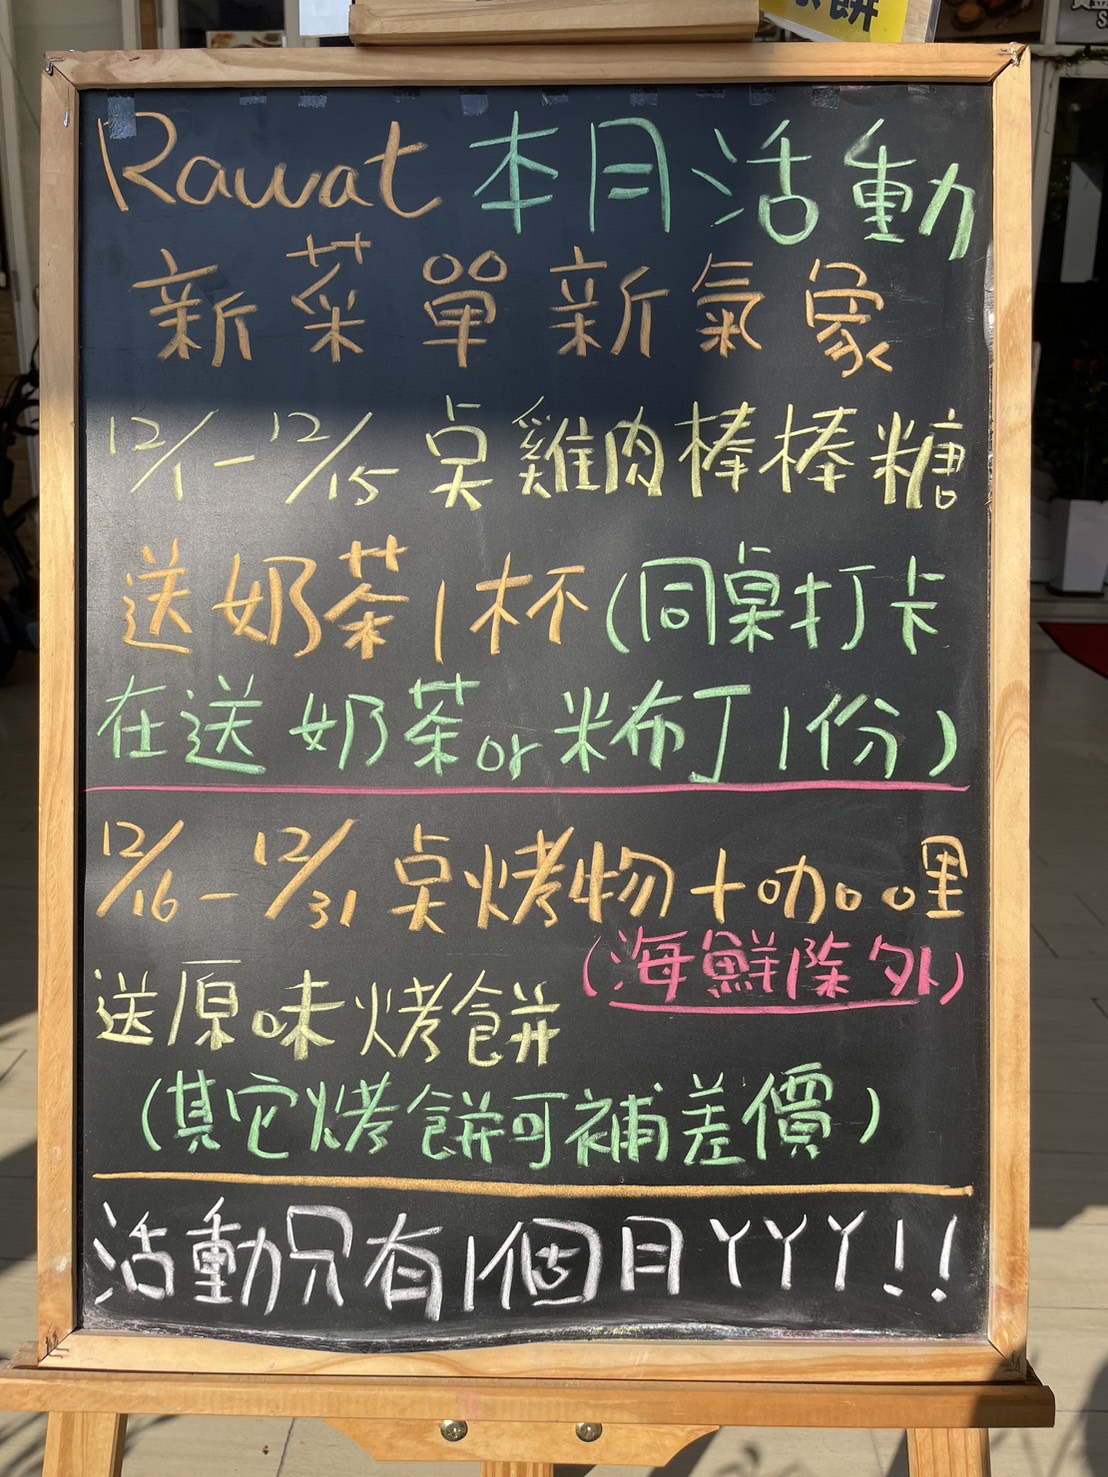 餅
Rawat 本月活動
新菜單新氣象
12/1-12/15 桌雞肉棒棒糖
送奶茶1杯(同桌打卡
在送奶茶or米布丁1份)
12/16-12/31 桌烤物+咖哩
(海鮮除外)
送原味烤餅
(其它烤餅可補差價)
活動只有1個月YYY!!